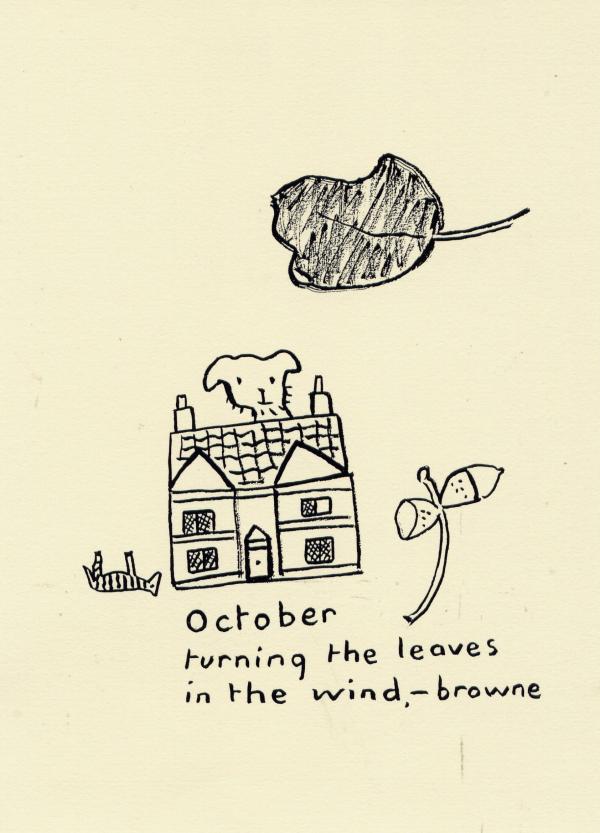 October
turning the leaves
in the wind,-browne